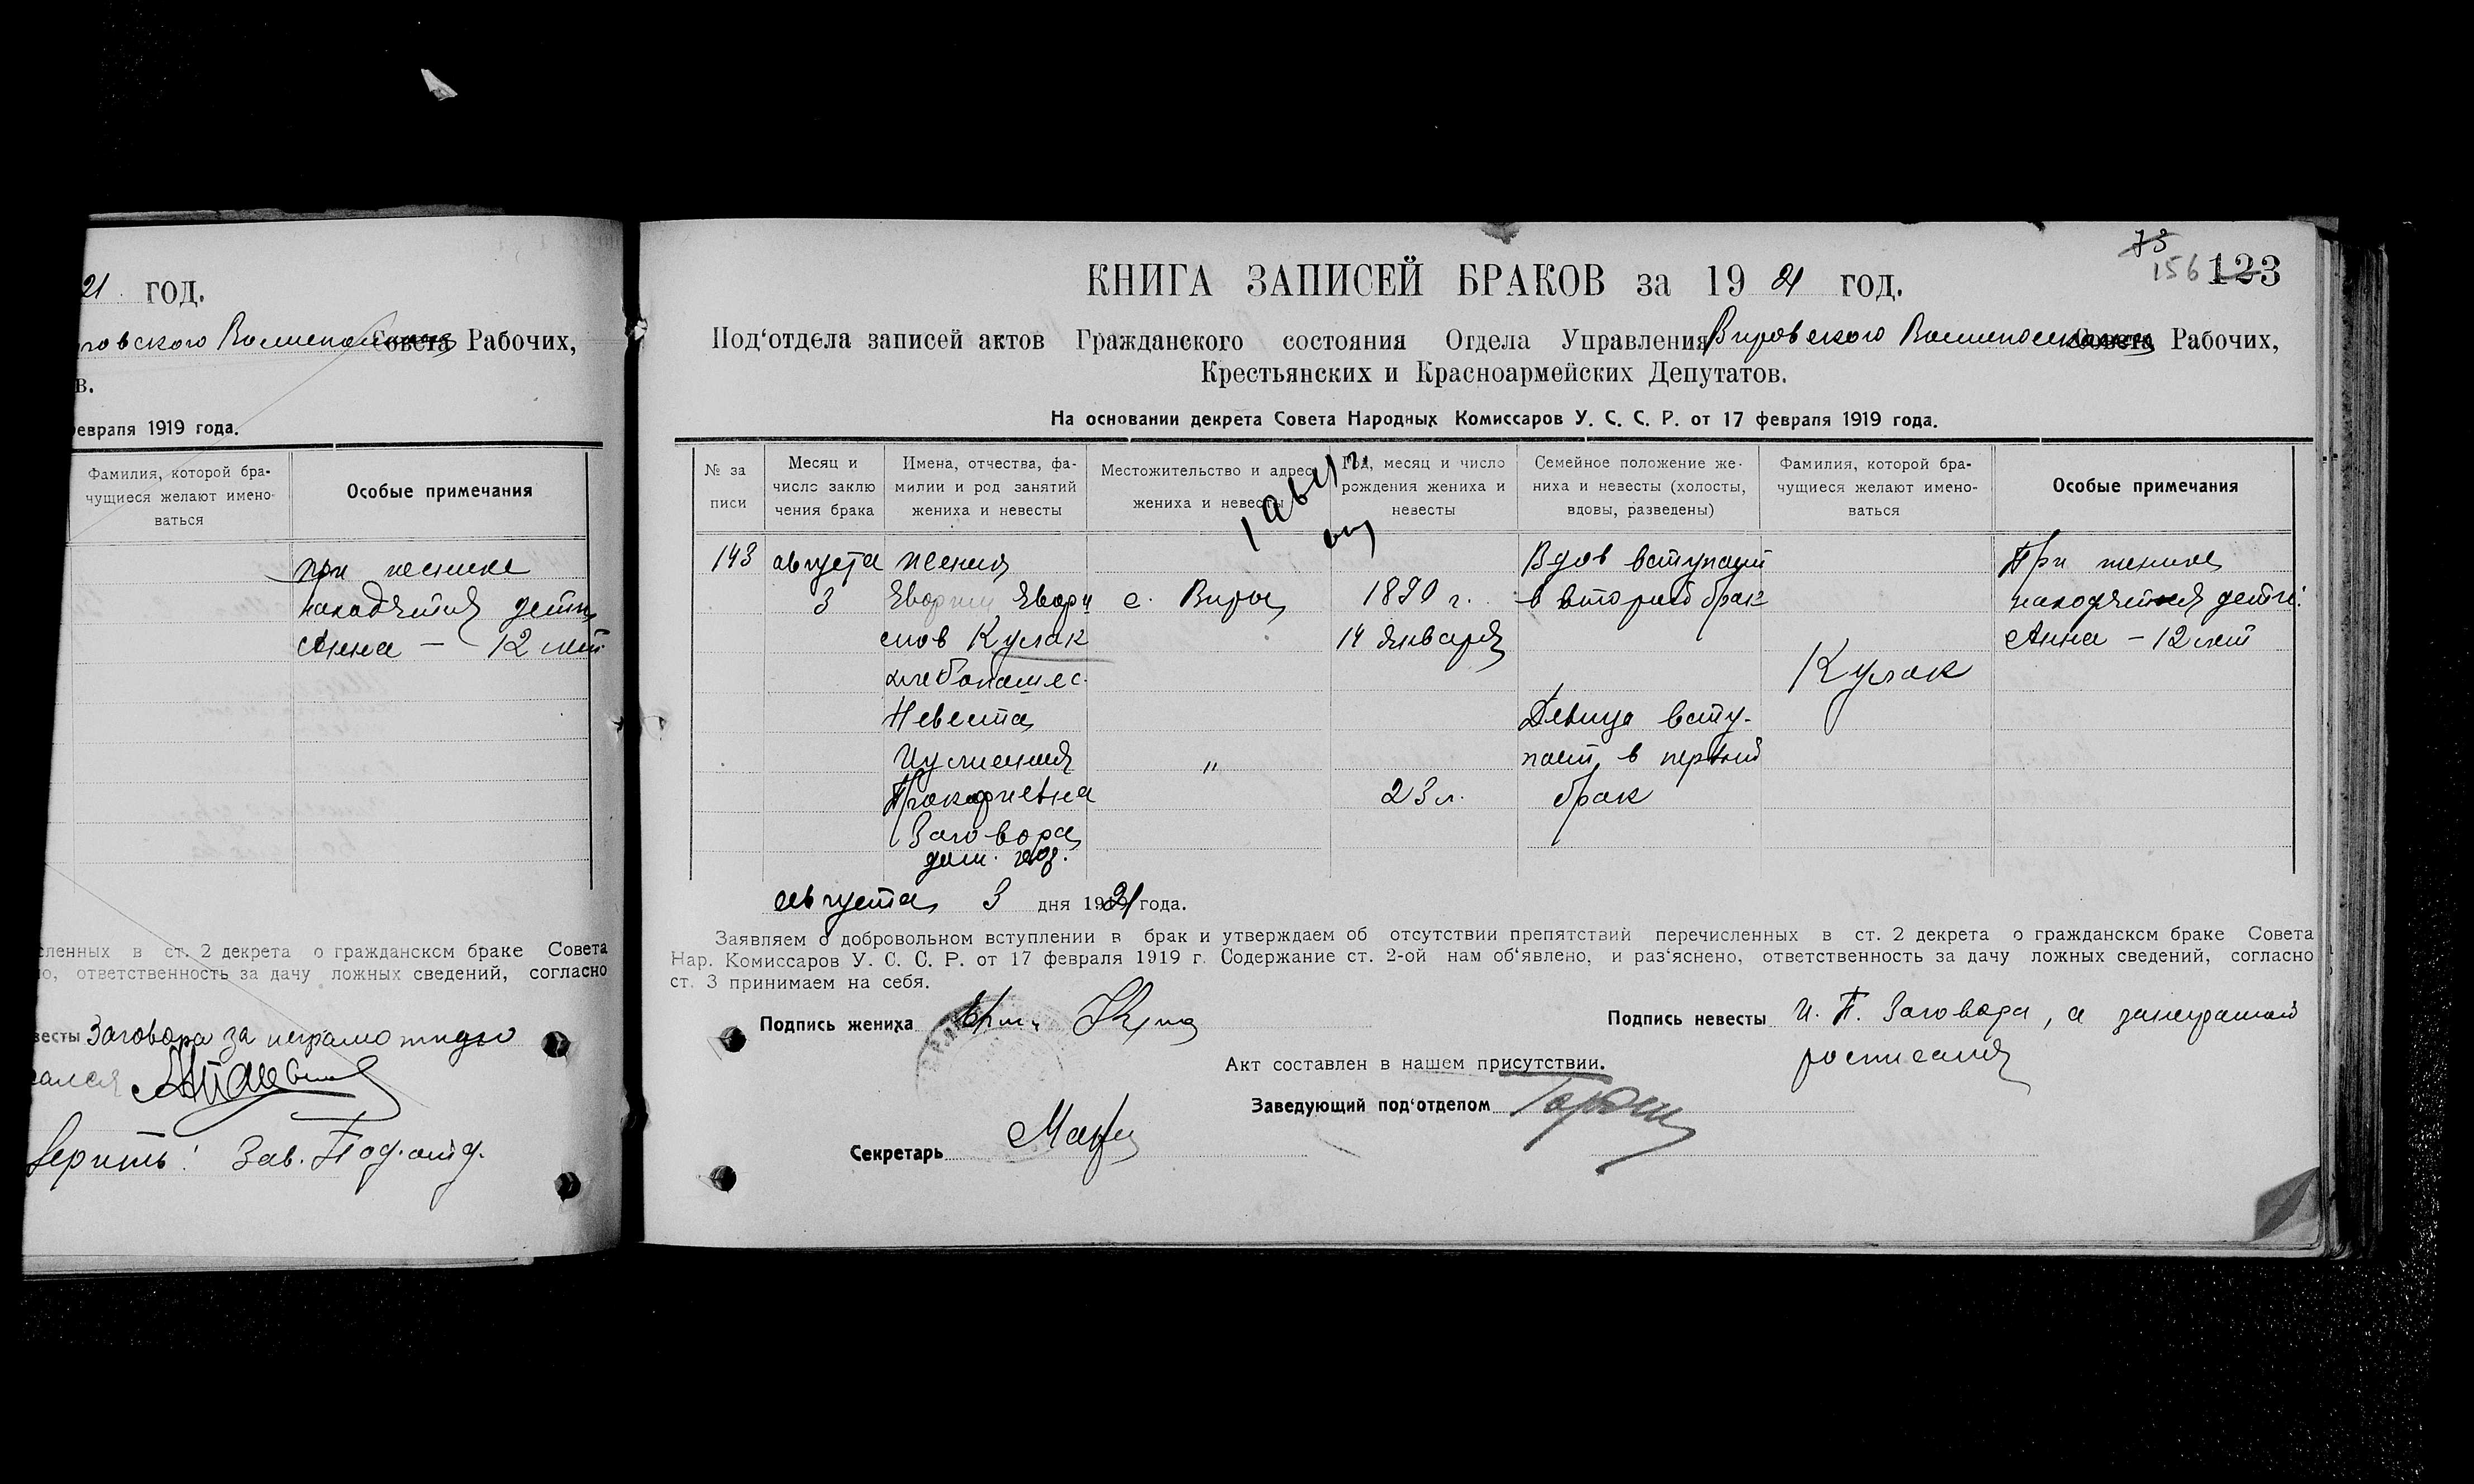 21 год.
Рабочих,
в.
февраля 1919 года.
Фамилия, которой бра-
чущиеся желают имено-
ваться
Особые примечания
при женихе
находятся дети
Анна — 12 лет
сленных в ст. 2 декрета о гражданском браке Совета
но, ответственность за дачу ложных сведений, согласно
весты Заговора за неграмотную
Зав. Под. отд.
73
156 123
КНИГА ЗАПИСЕЙ БРАКОВ за 1921 год.
Под‘отдела записей актов Гражданского состояния Отдела Управления Вировского Совета Рабочих,
Крестьянских и Красноармейских Депутатов.
На основании декрета Совета Народных Комиссаров У. С. С. Р. от 17 февраля 1919 года.
№ за
писи
Месяц и
число заклю
чения брака
Имена, отчества, фа-
милии и род занятий
жениха и невесты
Местожительство и адрес
жениха и невесты
Год, месяц и число
рождения жениха и
невесты
Семейное положение же-
ниха и невесты (холосты,
вдовы, разведены)
Фамилия, которой бра-
чущиеся желают имено-
ваться
Особые примечания
143 августа
3
жених
Кулак
хлебопашес.
с. Виры
1890 г.
14 января
Вдов вступает
в второй брак
Кулак
При женихе
находятся дети:
Анна — 12 лет
Невеста
Прокофиевна
Заговора
дом. хоз.
"
23 л.
Девица всту-
пает в первый
брак
августа 3 дня 1921 года.
Заявляем о добровольном вступлении в брак и утверждаем об отсутствии препятствий перечисленных в ст. 2 декрета о гражданском браке Совета
Нар. Комиссаров У. С. С. Р. от 17 февраля 1919 г. Содержание ст. 2-ой нам об‘явлено, и раз‘яснено, ответственность за дачу ложных сведений, согласно
ст. 3 принимаем на себя.
Подпись жениха
Подпись невесты И. П. Заговора, а
Акт составлен в нашем присутствии.
Заведующий под‘отделом
Секретарь